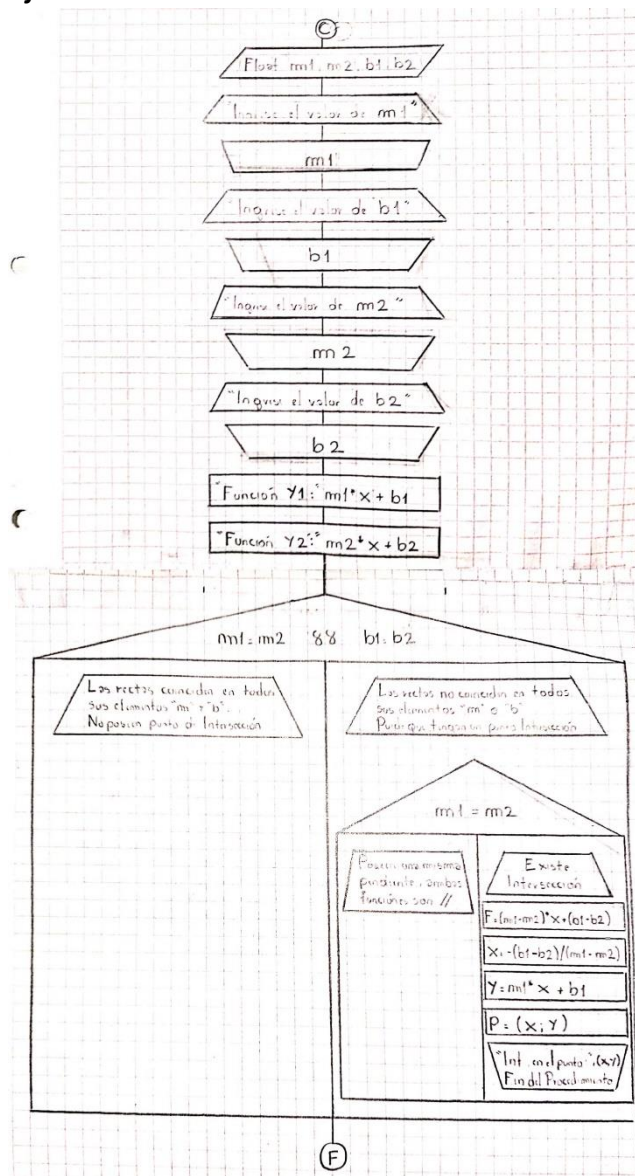 C
Float m1, m2, b1, b2
"Ingrese el valor de m1"
m1
"Ingrese el valor de b1"
b1
"Ingrese el valor de m2"
m2
"Ingrese el valor de b2"
b2
"Función Y1:" m1*x + b1
"Función Y2:" m2*x + b2
m1=m2 && b1=b2
Las rectas coinciden en todos
sus elementos "m" y "b"
No poseen punto de Intersección
Las rectas no coinciden en todos
sus elementos "m" o "b"
Puede que tengan un punto Intersección
m1 = m2
Poseen una misma
pendiente, ambas
funciones son //
Existe
Intersección
F=(m1-m2)*x+(b1-b2)
x=-(b1-b2)/(m1-m2)
Y=m1*x + b1
P=(x;Y)
"Int. en el punto:",(x,y)
Fin del Procedimiento
F